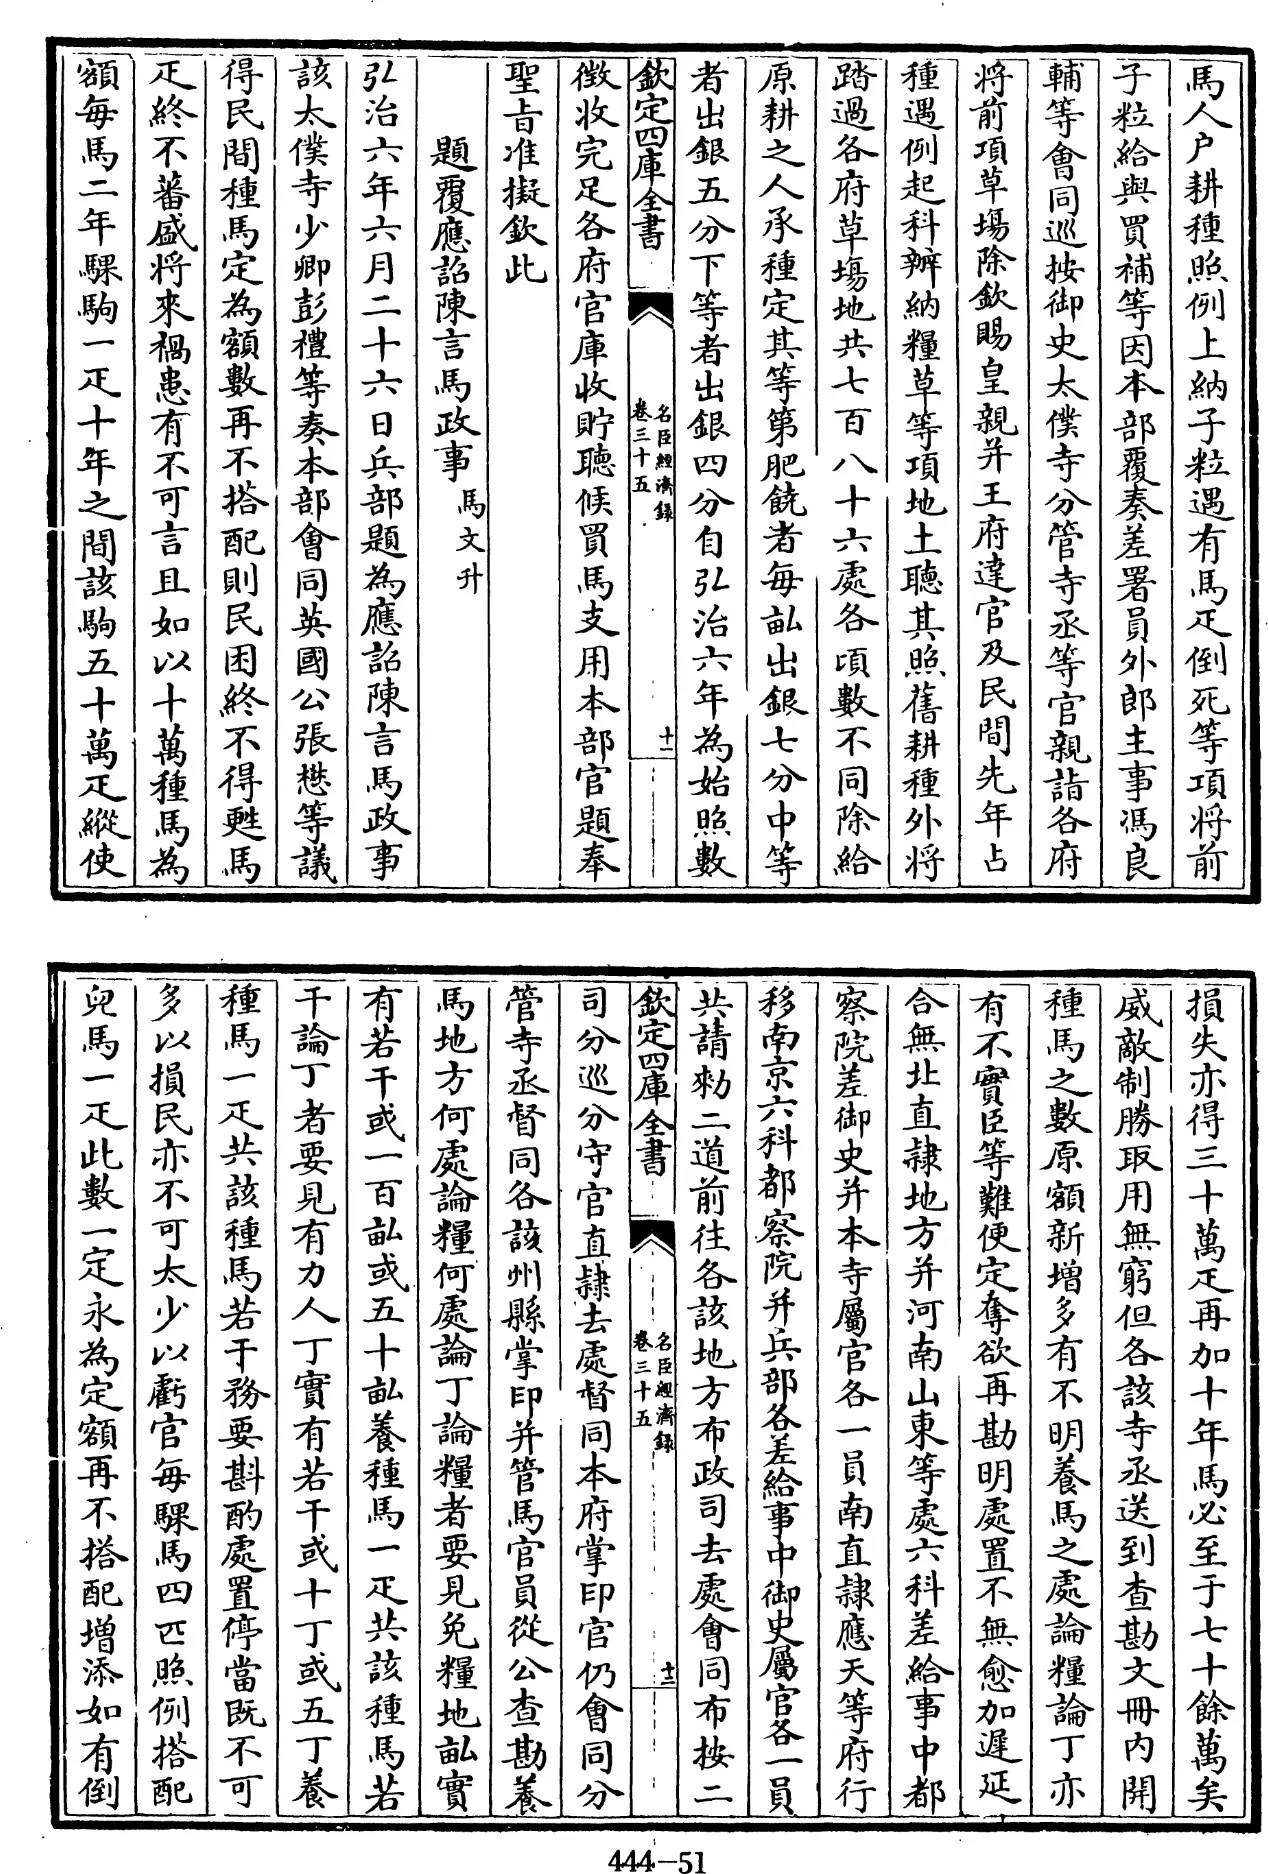 馬人户耕種照例上納子粒遇有馬疋倒死等項將前
子粒給與買補等因本部覆奏差署員外郎主事馮良
輔等會同巡按御史太僕寺分管寺丞等官親詣各府
將前項草塲除欽賜皇親并王府達官及民間先年占
種遇例起科辦納糧草等項地土聽其照舊耕種外將
踏過各府草塲地共七百八十六處各頃數不同除給
原耕之人承種定其等第肥饒者每畝出銀七分中等
者出銀五分下等者出銀四分自弘治六年為始照數
欽定四庫全書
名臣經濟錄
卷三十五
十一
徴收完足各府官庫收貯聽候買馬支用本部官題奉
聖旨准擬欽此
題覆應詔陳言馬政事 馬文升
弘治六年六月二十六日兵部題為應詔陳言馬政事
該太僕寺少卿彭禮等奏本部會同英國公張懋等議
得民間種馬定為額數再不搭配則民困終不得甦馬
疋終不蕃盛將來禍患有不可言且如以十萬種馬為
額每馬二年騍駒一疋十年之間該駒五十萬疋縱使
損失亦得三十萬疋再加十年馬必至于七十餘萬矣
威敵制勝取用無窮但各該寺丞送到查勘文冊內開
種馬之數原額新增多有不明養馬之處論糧論丁亦
有不實臣等難便定奪欲再勘明處置不無愈加遲延
合無北直隷地方并河南山東等處六科差給事中都
察院差御史并本寺屬官各一員南直隷應天等府行
移南京六科都察院并兵部各差給事中御史屬官各一員
共請勑二道前往各該地方布政司去處會同布按二
欽定四庫全書
名臣經濟錄
卷三十五
十二
司分巡分守官直隷去處督同本府掌印官仍會同分
管寺丞督同各該州縣掌印并管馬官員從公查勘養
馬地方何處論糧何處論丁論糧者要見免糧地畝實
有若干或一百畝或五十畝養種馬一疋共該種馬若
干論丁者要見有力人丁實有若干或十丁或五丁養
種馬一疋共該種馬若干務要斟酌處置停當既不可
多以損民亦不可太少以虧官每騍馬四匹照例搭配
兒馬一疋此數一定永為定額再不搭配增添如有倒
444-51